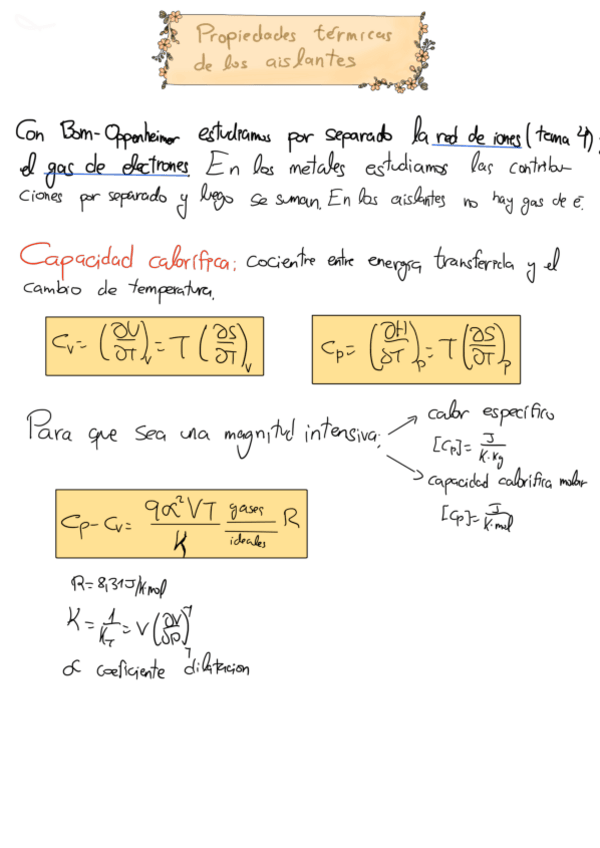 Propiedades térmicas
de los aislantes
Con Born-Oppenheimer estudiamos por separado la red de iones (tema 4) y
el gas de electrones. En los metales estudiamos las contribu-
ciones por separado y luego se suman. En los aislantes no hay gas de ē.
Capacidad calorífica: cociente entre energía transferida y el
cambio de temperatura.
Cv = (∂U/∂T)v = T (∂S/∂T)v
Cp = (∂H/∂T)p = T (∂S/∂T)p
Para que sea una magnitud intensiva:
calor específico
[Cp] = J/K·kg
capacidad calorífica molar
[Cp] = J/K·mol
Cp - Cv = 9α²VT/K gases ideales R
R = 8,31 J/K mol
K = 1/K_T = V (∂V/∂p)_T⁻¹
α coeficiente dilatacion